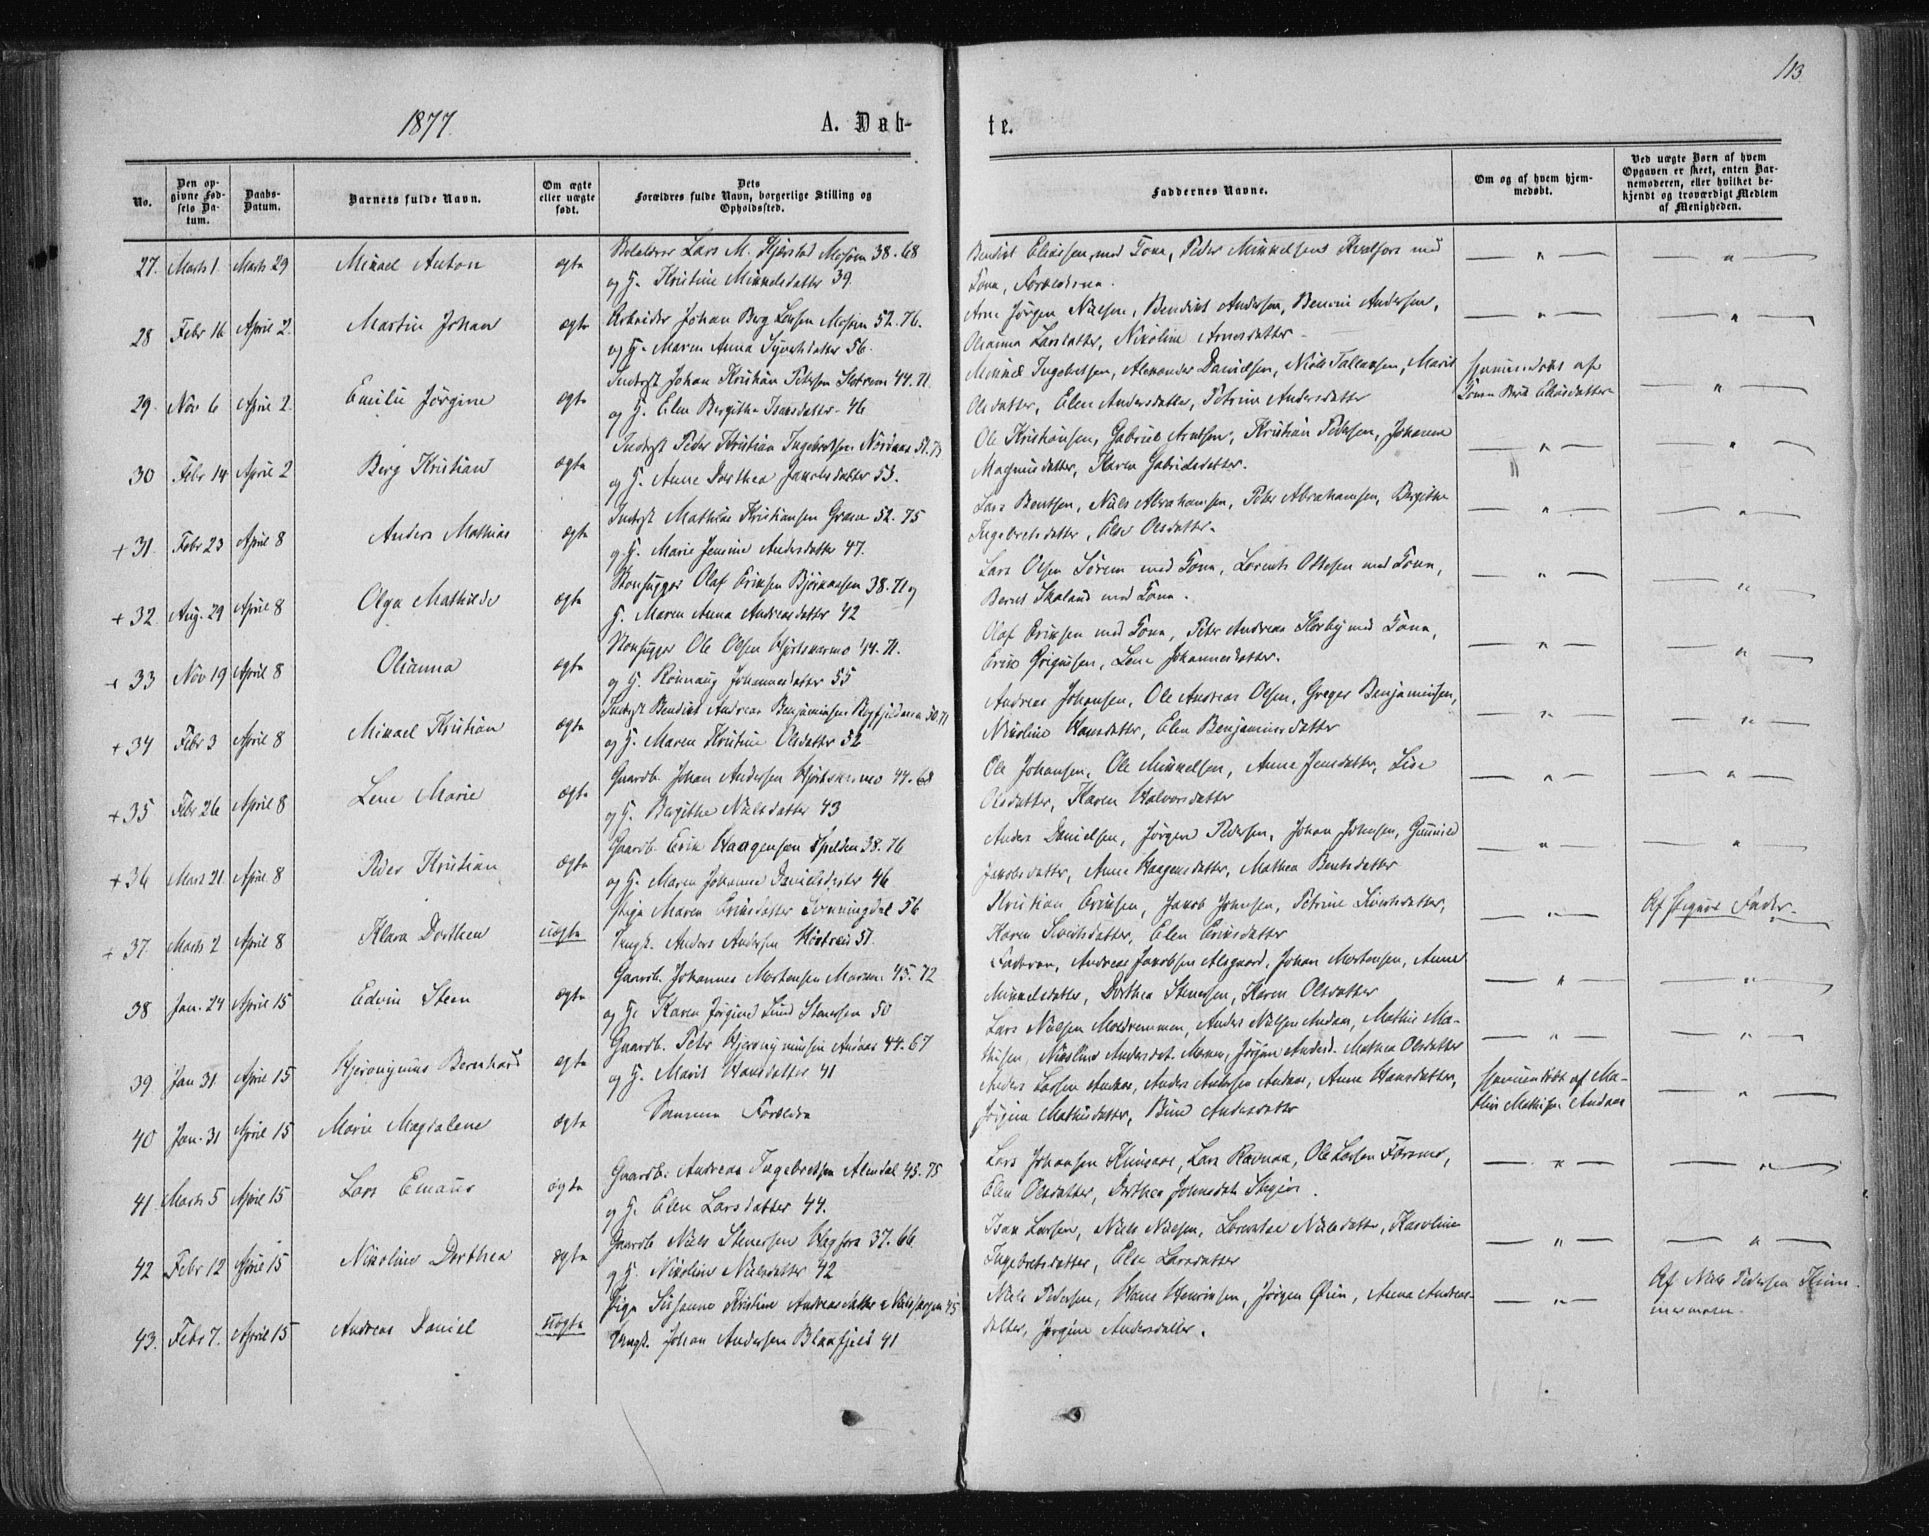 113.
1877.
A. Døb-
te.
No.
Den op-
givne Fød-
sels Da-
tum.
Daabs-
Datum.
Barnets fulde Navn.
Om ægte
eller uægte
født.
Dets
Forældres fulde Navn, borgerlige Stilling og
Opholdssted.
Faddernes Navne.
Om og af hvem hjem-
medøbt.
Ved uægte Børn af hvem
Opgaven er skeet, enten Bar-
nemoderen, eller hvilket be-
kjendt og troværdigt Medlem
af Menigheden.
27. Marts 1. Marts 29 Mikael Anton ægte Lars M. Hjerstad Mosøen 38.68
og H. Kristine Mikkelsdatter 39.
Bendikt Eliassen med Kona, Peder Mikkelsen med
Kona, Forældrene.
28 Febr 16 April 2. Martin Johan ægte Arbeider Johan Berg Larsen Mosøen 52.76.
og H. Maren Anna Syvertsdatter 56.
Arne Jørgen Nielsen, Bendikt Andersen, Benoni Andersen,
Olianna Larsdatter, Nikoline Arnesdatter
29. Nov 6 April 2. Emilie Jørgine ægte Inderst Johan Kristian Petersen 44.71
og H. Elen Bergithe Isaksdatter 46
Mikkel Ingebretsen, Alexander Danielsen, Niels Tallaksen, Marit
Olsdatter, Elen Andersdatter, Petrine Andersdatter
Hjemmedøbt af
Konen Berit Eliasdatter
30 Febr 14 April 2 Berg Kristian ægte Inderst Peder Kristian Ingebretsen 51.73
og H. Anne Dorthea Jakobsdatter 53.
Ole Kristiansen, Gabriel Arntsen, Kristian Pedersen, Johanne
Magnusdatter, Karen Gabrielsdatter.
+ 31. Febr 23 April 8 Anders Mathias ægte Inderst Mathias Kristiansen Grane 52.75
og H. Marie Jensine Andersdatter 47.
Lars Bentsen, Niels Abrahamsen, Peter Abrahamsen, Bergithe
Ingebretsdatter, Else Olsdatter.
+ 32. Aug. 29 April 8 Olga Mathilde ægte Olaf Eriksen Bjørkaasen 38.71 og
H. Maren Anna Andreasdatter 42
Lars Olsen med Kona, Lorents Ottesen med Kona,
Bernt Skaland med Kona.
+ 33 Nov 19 April 8 Olianna ægte Ole Olsen 44.71.
og H. Rønnaug Johannesdatter 55
Olaf Eriksen med Kona, Peter Andreas med Kona,
Erik, Lene Johannesdatter.
+ 34 Febr 3 April 8 Mikael Kristian ægte Inderst Bendikt Andreas Benjaminsen 50.71
og H. Maren Kristine Olsdatter 52
Andreas Johansen, Ole Andreas Olsen, Greger Benjaminsen,
Nikoline Hansdatter, Elen Benjaminsdatter
+ 35 Febr 26 April 8 Lene Marie ægte Gaardb. Johan Andersen 44.68
og H. Bergithe Nielsdatter 43
Ole Johansen, Ole Mikkelsen, Anne Jensdatter, Lise
Olsdatter, Karen Halvorsdatter
+ 36 Mars 21 April 8 Peder Kristian ægte Gaardb. Erik Haagensen 38.76
og H. Maren Johanne Danielsdatter 46
Anders Danielsen, Jørgen Pedersen, Johan Johnsen, Gunnild
Jakobsdatter, Anne Haagensdatter, Mathea Bentsdatter
+ 37. Marts 2 April 8 Klara Dorthea uægte Pige Maren Eriksdatter Svenningdal 56
Ungk. Anders Andersen 51.
Kristian Eriksen, Jakob Johnsen, Petrine,
Karen, Elen Eriksdatter
Af Pigens Fader.
38 Jan. 24 April 15 Edvin Steen ægte Gaardb. Johannes Mortensen 45.72
og H. Karen Jørgine Lund Stenersen 50
Faderen, Andreas Jakobsen Alsgaard, Johan Mortensen, Anne
Mikkelsdatter, Dorthea Stenersen, Karen Olsdatter
39 Jan 31 April 15 Hjeronymus Bernhard ægte Gaardb. Peter Hjeronymussen Andaas 44.67
og H. Marit Hansdatter 41
Lars Nielsen Moldremmen, Anders Nielsen Andaas, Mathis Ma-
thisen, Nikoline Andersdat., Jørgine Andersd. Mathea Olsdatter
40 Jan. 31 April 15 Marie Magdalene ægte Samme Forældre
Anders Larsen Andaas, Anders Andersen Andaas, Anne Hansdatter,
Jørgine Mathisdatter, Andersdatter
Hjemmedøbt af Ma-
this Mathisen Andaas
41. Marts 5 April 15 Lars Emaus ægte Gaardb. Andreas Ingebretsen Almdal 43.75
og H. Elen Larsdatter 44.
Lars Johansen, Lars, Ole Larsen,
Elen Olsdatter, Dorthea.
42 Febr 12 April 15 Nikoline Dorthea ægte Gaardb Niels Stenersen Hagfors 37.66
og H. Nikoline Nielsdatter 42
Isak Larsen, Niels Nielsen, Lorentse Nielsdatter, Karoline
Ingebretsdatter, Else Larsdatter
43. Febr 7. April 15 Andreas Daniel uægte Pige Susanne Kristine Andreasdatter 45
Ungk. Johan Andersen Blaafjeld 41
Niels Pedersen, Hans Henriksen, Jørgen Øien, Anna Andreas-
datter, Jørgine Andersdatter.
Af Niels Pedersen